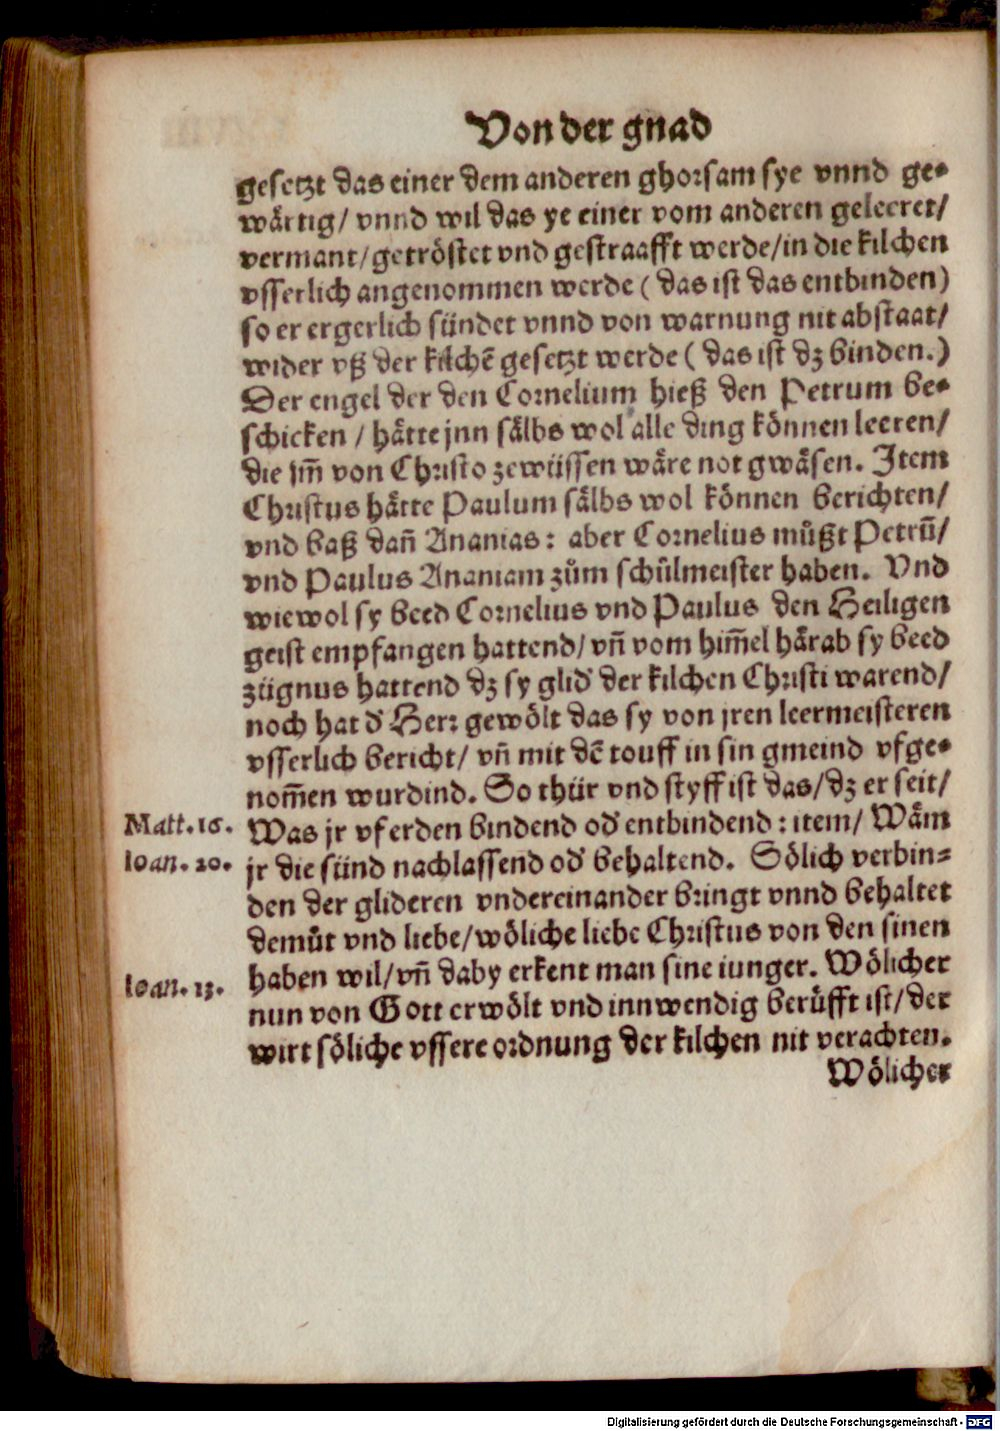 Von der gnad
gesetzt das einer dem anderen ghorsam sye vnnd ge-
wärtig/ vnnd wil das ye einer vom anderen geleeret/
vermant/ getröstet vnd gestraafft werde/ in die kilchen
vsserlich angenommen werde ( das ist das entbinden)
so er ergerlich sündet vnnd von warnung nit abstaat/
wider vß der kilchē gesetzt werde ( das ist dz binden.)
Der engel der den Cornelium hieß den Petrum be-
schicken / hätte jnn sälbs wol alle ding können leeren/
die jm̄ von Christo zewüssen wäre not gwäsen. Item
Christus hätte Paulum sälbs wol können berichten/
vnd baß dañ Ananias: aber Cornelius mûßt Petrū/
vnd Paulus Ananiam zům schůlmeister haben. Vnd
wiewol sy beed Cornelius vnd Paulus den Heiligen
geist empfangen hattend/ vñ vom him̄el härab sy beed
zügnus hattend dz sy glid' der kilchen Christi warend/
noch hat d' Herr gewölt das sy von jren leermeisteren
vsserlich bericht/ vñ mit dē touff in sin gmeind vfge-
nom̄en wurdind. So thür vnd styff ist das/ dz er seit/
Matt.16. Was jr vf erden bindend od' entbindend : item/ Wäm
Ioan. 20. jr die sünd nachlassend od' behaltend. Sölich verbin-
den der glideren vndereinander bringt vnnd behaltet
demůt vnd liebe/ wöliche liebe Christus von den sinen
Ioan. 13. haben wil/ vñ daby erkent man sine iunger. Wölicher
nun von Gott erwölt vnd innwendig berüfft ist/ der
wirt söliche vssere ordnung der kilchen nit verachten.
Wölicher
Digitalisierung gefördert durch die Deutsche Forschungsgemeinschaft - DFG